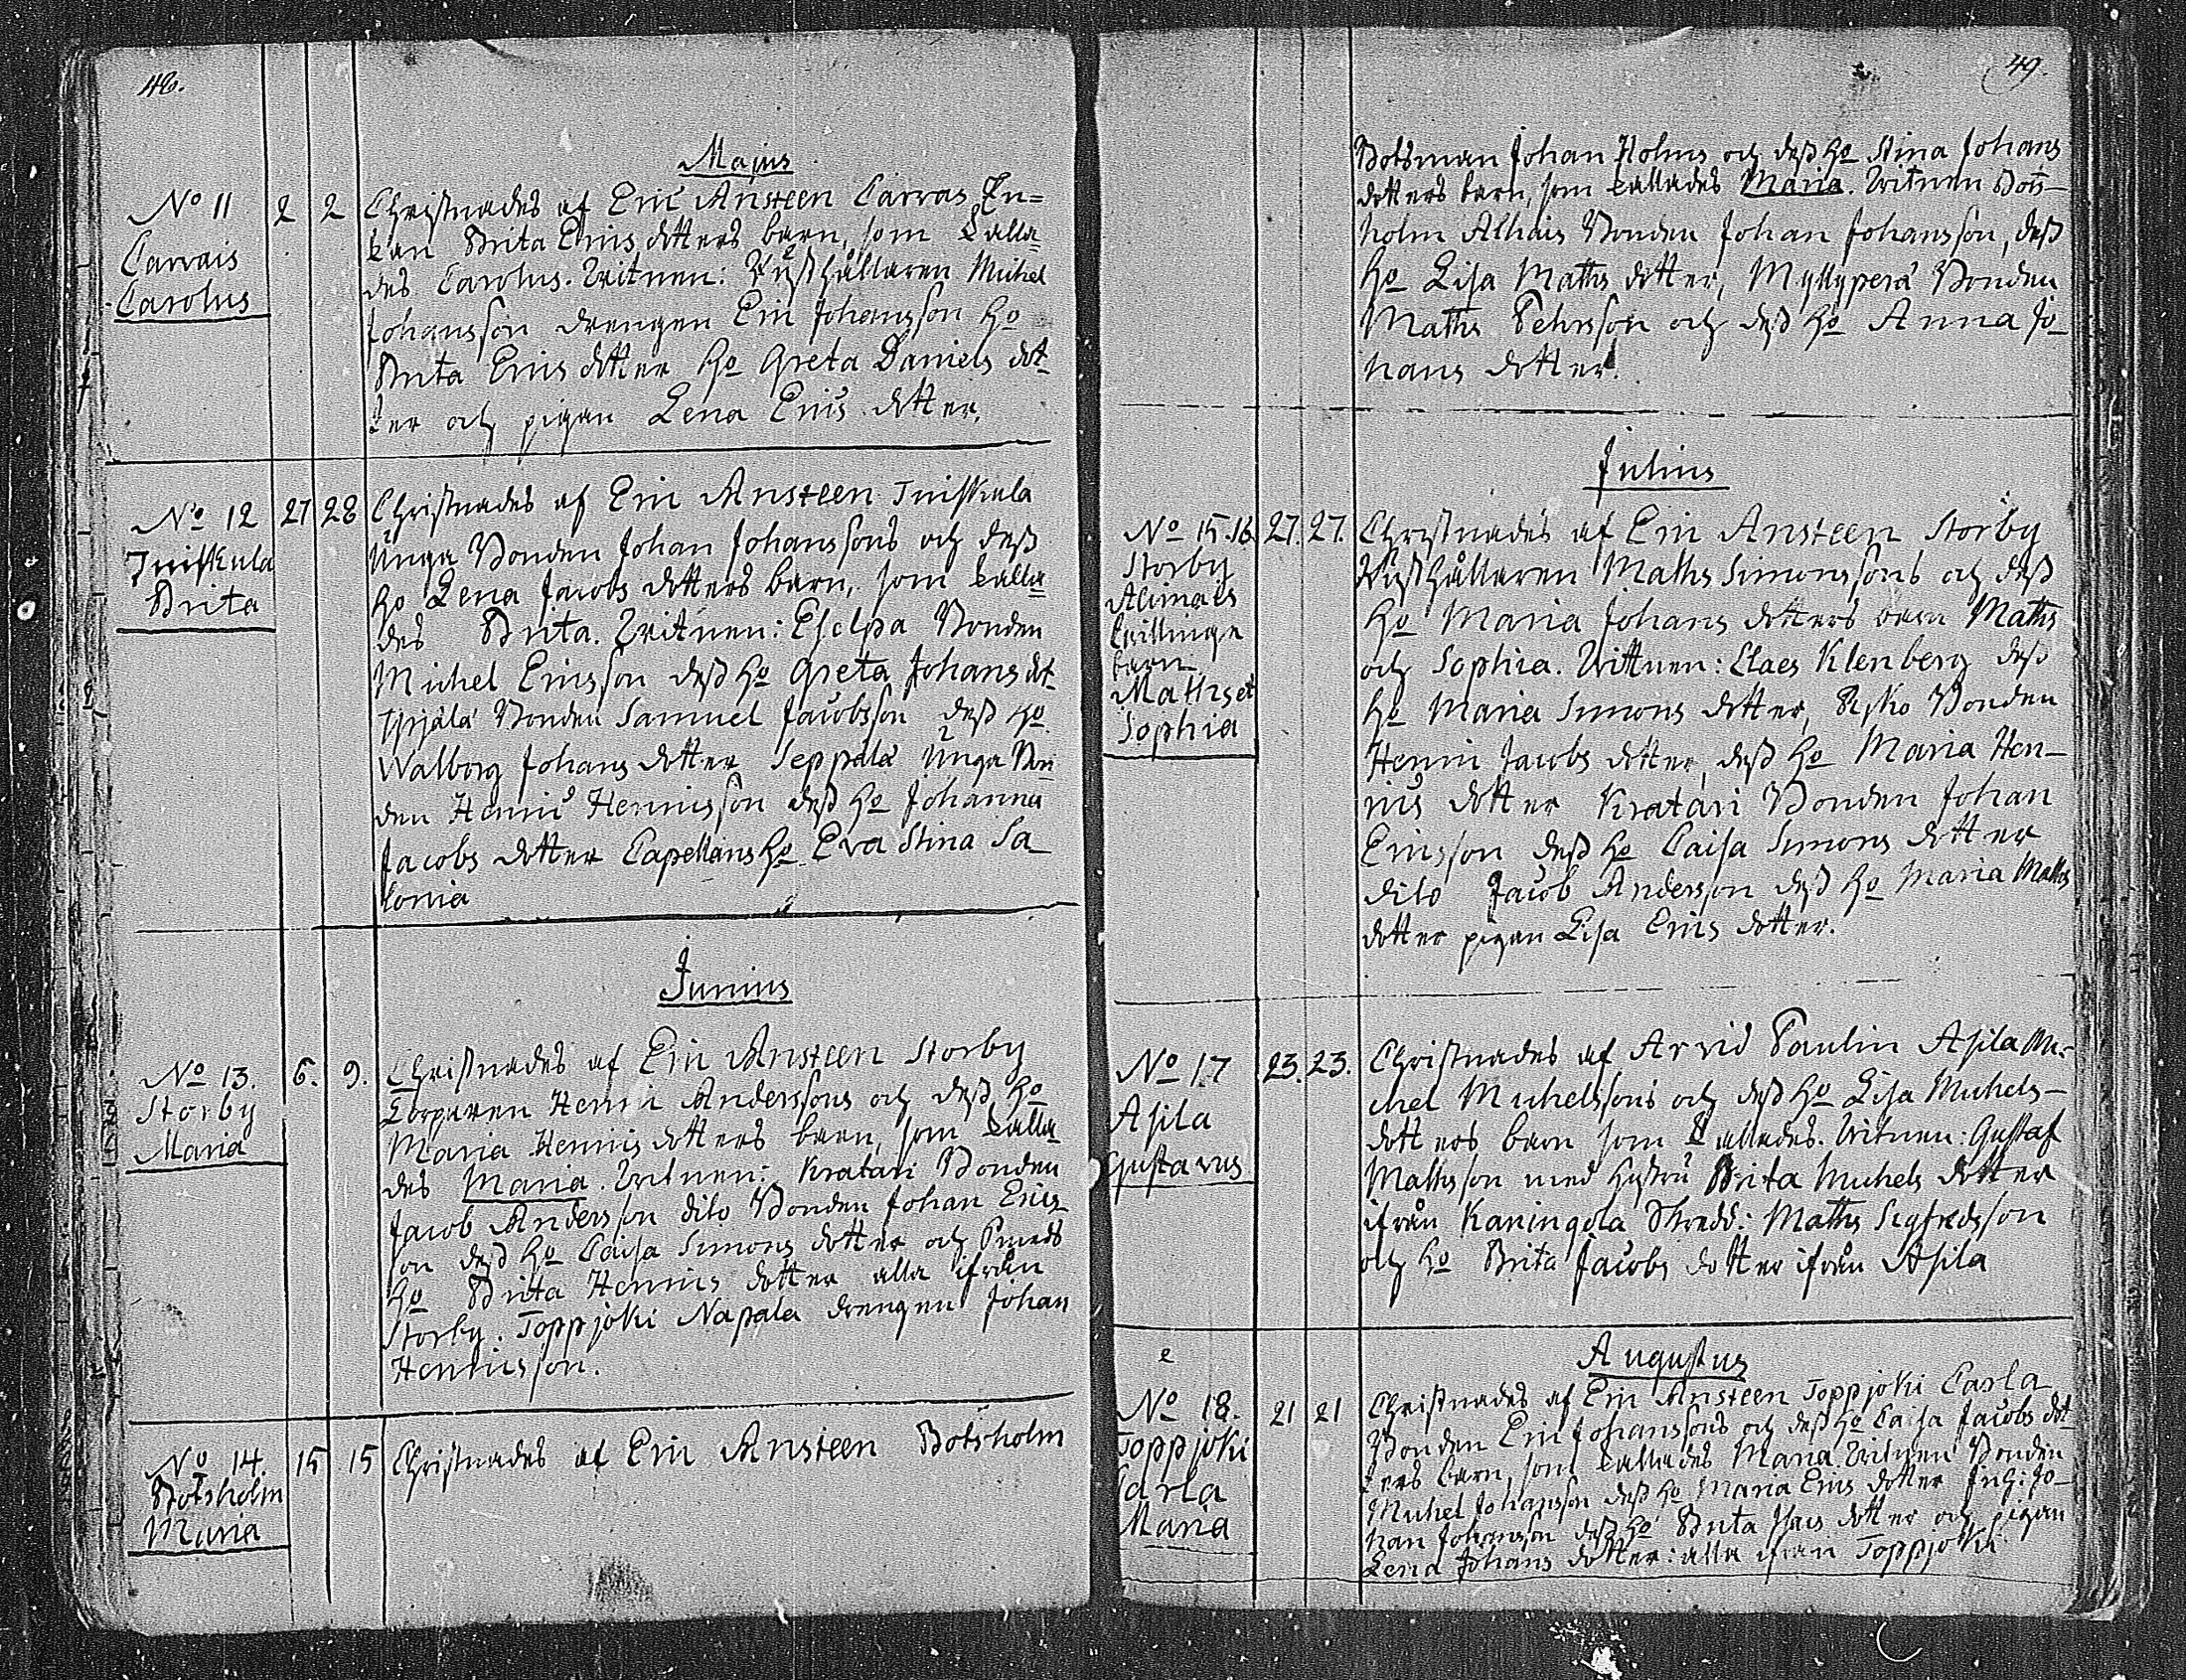 48.
Majus
No 11 2 2
Carvais
Carolus
Christnades af Eric Ansteen Carvas En=
kan Brita Erics dotters barn, som kalla=
des Carolus. Witnen: Rusthållaren Michel
Johansson drengen Eric Johansson Ho
Brita Erics dotter Ho Greta Daniels dot
ter och pigan Lena Erics dotter.
No 12 27 28
Juniskula
Brita
Christnades af Eric Ansteen Juniskula
Unga Bonden Johan Johanssons och dess
Ho Lena Jacobs dotters barn, som kalla=
des Brita. Witnen: Eskelpa Bonden
Michel Ericsson dess Ho Greta Johans dot
Bonden Samuel Jacobsson dess Ho
Walborg Johans dotter Seppälä Unga Bon
den Henric Henricsson dess Ho Johanna
Jacobs dotter Capellans Ho Eva Stina Sa_
lonia
Junius
No 13. 6. 9.
Storby
Maria
Christnades af Eric Ansteen Storby
Torparen Henric Anderssons och dess Ho
Maria Henrics dotters barn, som kalla
des Maria. Witnen: Kratari Bonden
Jacob Andersson dito Bonden Johan Erics
son dess Ho Caisa Simons dotter och
Ho Brita Henrics dotter alla ifrån
Storby. Toppjoki Napala drengen Johan
Henricsson.
No 14. 15 15
Botsholm
Maria
Christnades af Eric Ansteen Botsholm
49.
Botsman Johan Holms och dess Ho Stina Johans
dotters barn, som kallades Maria. Witnen Bots-
holm Alhais Bonden Johan Johansson, dess
Ho Lisa Maths dotter, Myllyperä Bonden
Maths Pehrsson och dess Ho Anna Jo_
hans dotter.
Julius
No 15.16. 27. 27.
Storby
Alimais
tvillinge
barn
Maths et
Sophia
Christnades af Eric Ansteen Storby
Rusthållaren Maths Simonssons och dess
Ho Maria Johans dotters barn Maths
och Sophia. Wittnen: Claes Klenberg dess
Ho Maria Simons dotter, Bonden
Henric Jacobs dotter, dess Ho Maria Hen-
rics dotter Kratari Bonden Johan
Ericsson dess Ho Caisa Simons dotter
dito Jacob Andersson dess Ho Maria Maths
dotter pigan Lisa Erics dotter.
No 17 23. 23.
Asila
Gustavus
Christnades af Arvid Paulin Asila Mi-
chel Michelssons och dess Ho Lisa Michels-
dotters barn som kallades. Witnen: Gustaf
Mathsson med hustru Brita Michels dotter
ifrån Kaningola Maths Sigfredsson
och Ho Brita Jacobs dotter ifrån Asila
Augustus
No 18. 21 21
Toppjoki
Carla
Maria
Christnades af Eric Ansteen Toppjoki Carla
Bonden Eric Johanssons och dess Ho Caisa Jacobs dot
ters barn, som kallades Maria. Witnen Bonden
Michel Johansson dess Ho Maria Erics dotter Jo-
han Johansson dess Ho Brita dotter och pigan
Lena Johans dotter: alla ifrån Toppjoki